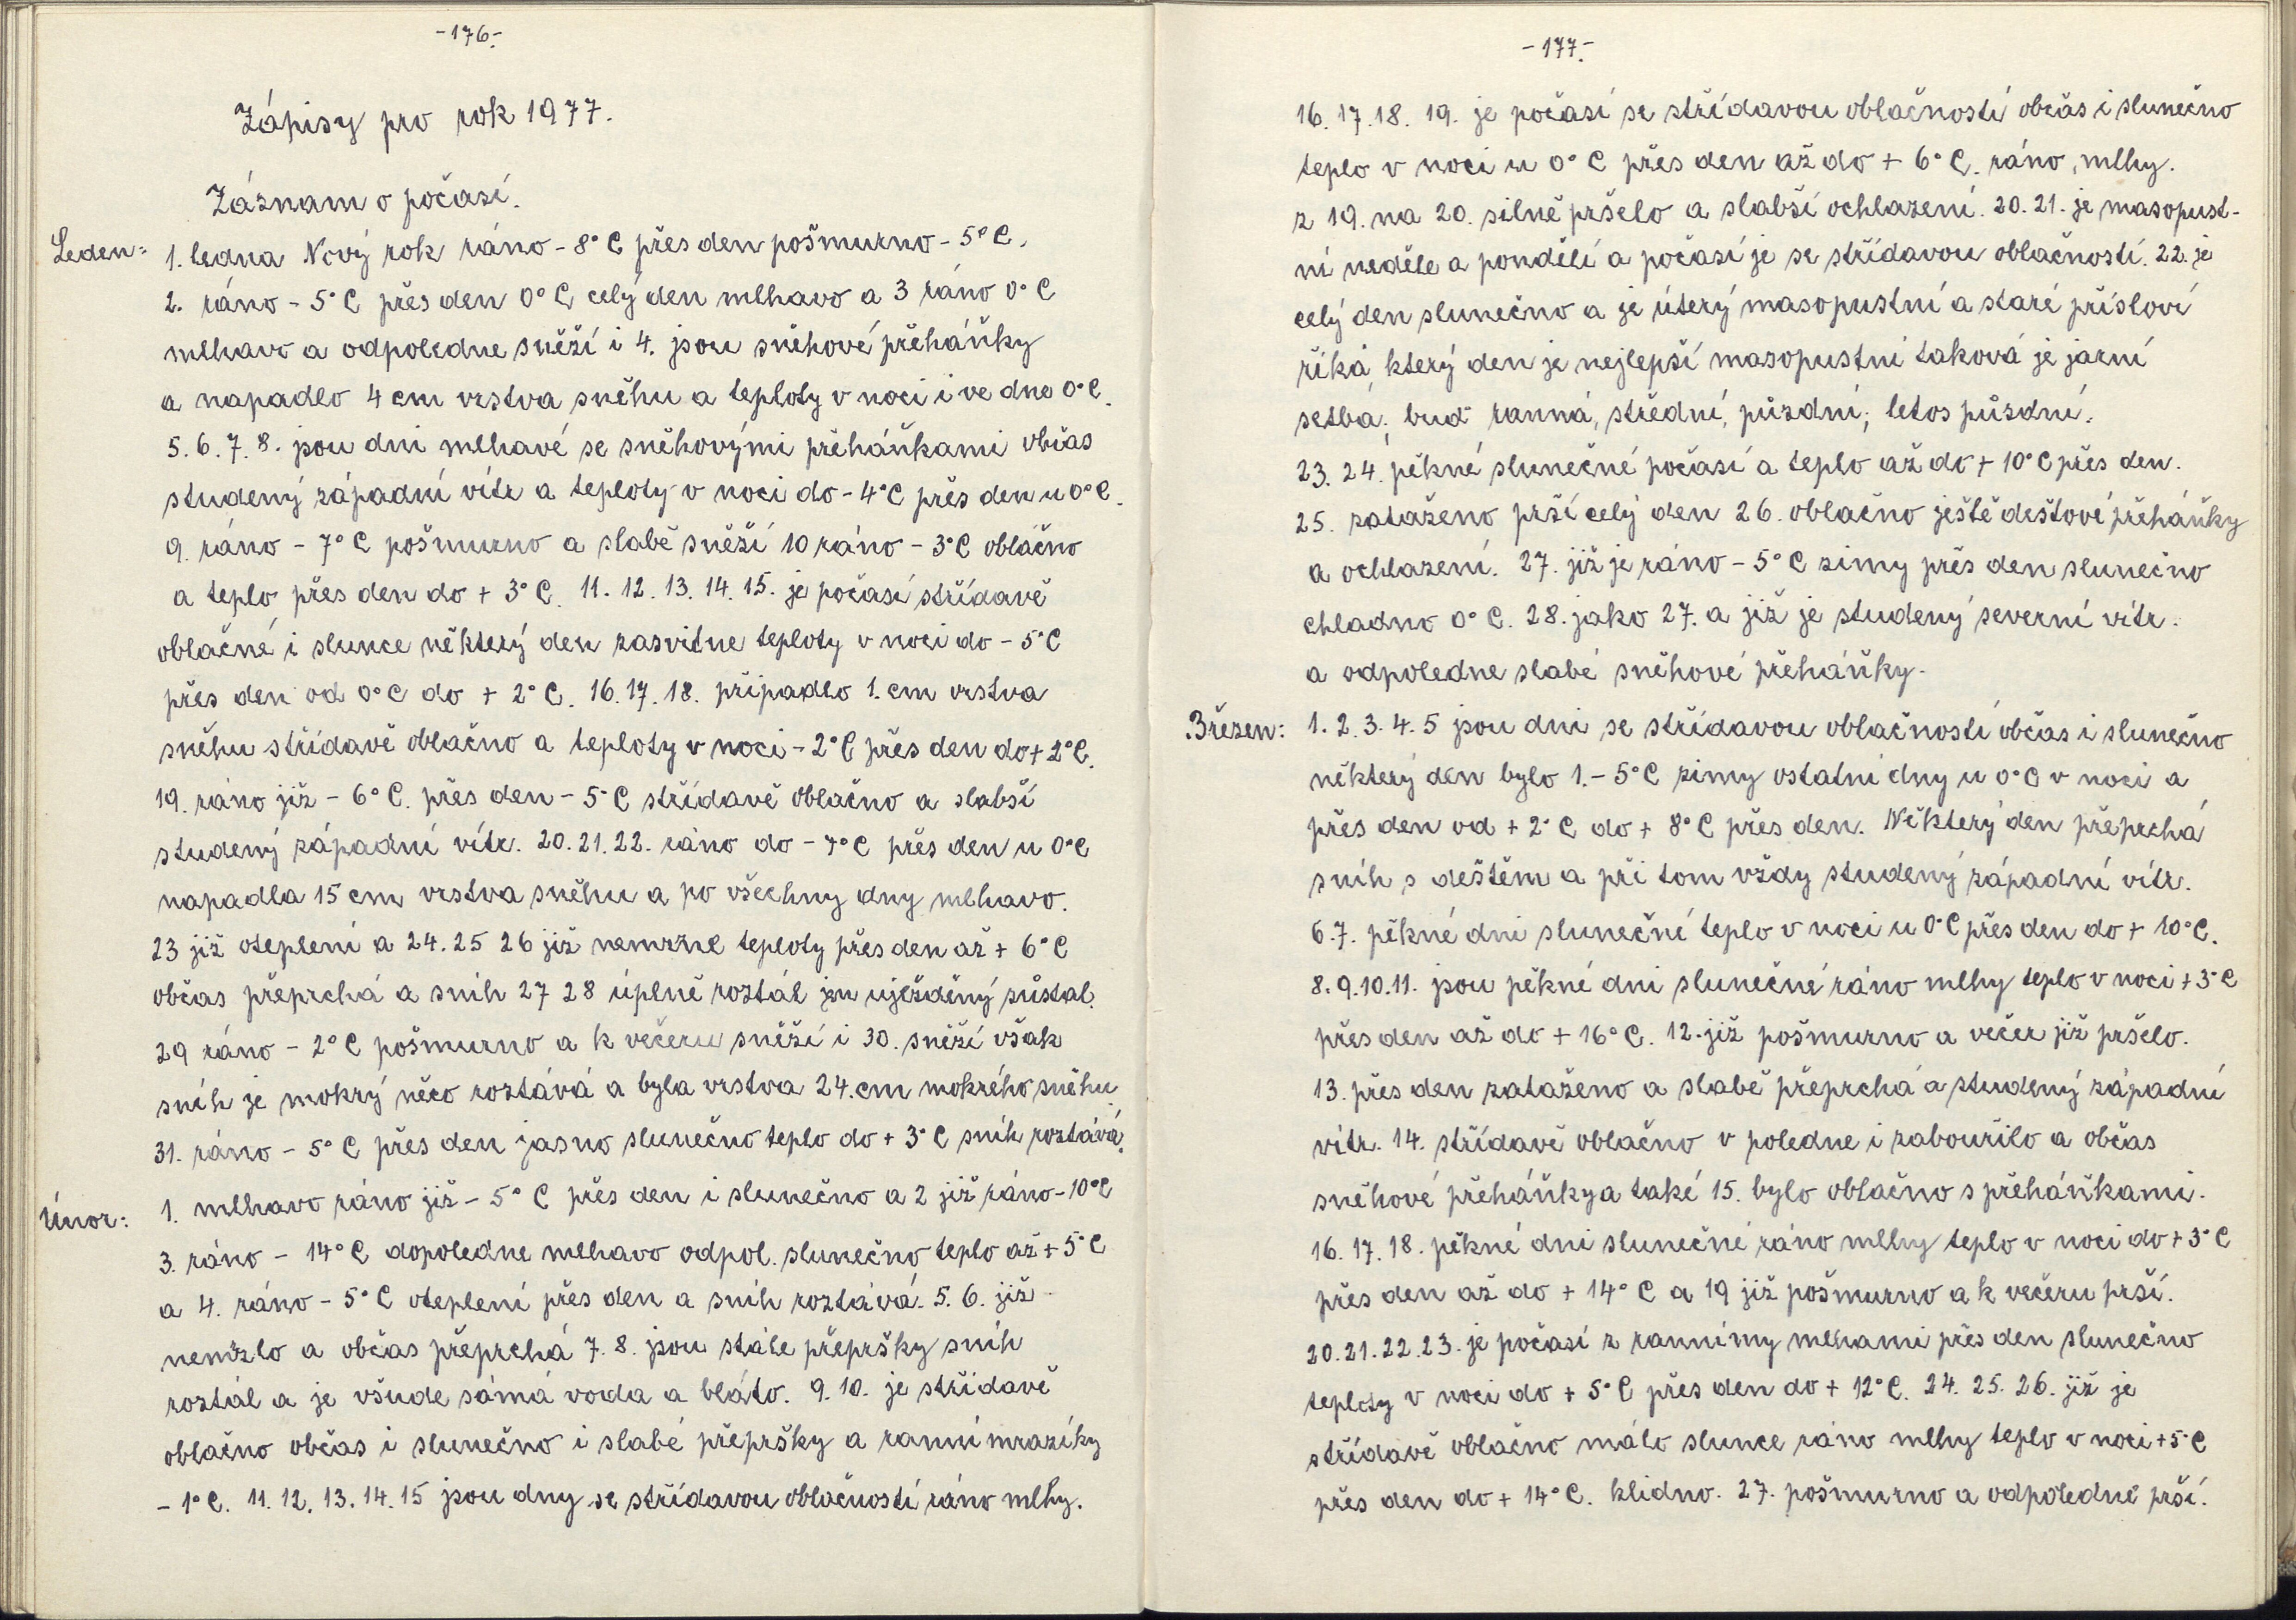 -176-
Zápisy pro rok 1977.
Záznam o počasí.
Leden: 1. ledna Nový rok ráno - 8° C přes den pošmurno - 5° C.
2. ráno - 5° C přes den 0° C celý den mlhavo a 3 ráno 0° C
mlhavo a odpoledne sněží i 4. jsou sněhové přeháňky
a napadlo 4 cm vrstva sněhu a teploty v noci i ve dne 0° C.
5. 6. 7. 8. jsou dni mlhavé se sněhovými přeháňkami občas
studený západní vítr a teploty v noci do - 4° C přes den u 0° C.
9. ráno - 7° C pošmurno a slabě sněží 10 ráno - 3° C oblačno
a teplo přes den do + 3° C. 11. 12. 13. 14. 15. je počasí střídavě
oblačné i slunce některý den zasvitne teploty v noci do - 5° C
přes den od 0° C do + 2° C. 16. 17. 18. připadlo 1. cm vrstva
sněhu střídavě oblačno a teploty v noci - 2° C přes den do + 2° C.
19. ráno již - 6° C. přes den - 5° C střídavě oblačno a slabší
studený západní vítr. 20. 21. 22. ráno do - 7° C přes den u 0° C
napadla 15 cm vrstva sněhu a po všechny dny mlhavo.
23 již oteplení a 24. 25 26 již nemrzne teploty přes den až + 6° C
občas přeprchá a sníh 27 28 úplně roztál jen uježděný zůstal.
29 ráno - 2° C pošmurno a k večeru sněží i 30. sněží však
sníh je mokrý něco roztává a byla vrstva 24. cm mokrého sněhu
31. ráno - 5° C přes den jasno slunečno teplo do + 3° C sníh roztává.
Únor: 1. mlhavo ráno již - 5° C přes den i slunečno a 2 již ráno - 10° C
3. ráno - 14° C dopoledne mlhavo odpol. slunečno teplo až + 5° C
a 4. ráno - 5° C oteplení přes den a sníh roztává. 5. 6. již
nemrzlo a občas přeprchá 7. 8. jsou stále přepršky sníh
roztál a je všude sámá voda a bláto. 9. 10. je střídavě
oblačno občas i slunečno i slabé přepršky a ranní mrazíky
- 1° C. 11. 12. 13. 14. 15 jsou dny se střídavou oblačností ráno mlhy.
-177-
16. 17. 18. 19. je počasí se střídavou oblačností občas i slunečno
teplo v noci u 0° C přes den až do + 6° C. ráno, mlhy.
z 19. na 20. silně pršelo a slabší ochlazení. 20. 21. je masopust-
ní neděle a pondělí a počasí je se střídavou oblačností. 22. je
celý den slunečno a je úterý masopustní a staré přísloví
říká, který den je nejlepší masopustní taková je jarní
setba; buď ranná, střední, půzdní; letos půzdní.
23. 24. pěkné slunečné počasí a teplo až do + 10° C přes den.
25. zataženo prší celý den 26. oblačno ještě dešťové přeháňky
a ochlazení. 27. již je ráno - 5° C zimy přes den slunečno
chladno 0° C. 28. jako 27. a již je studený severní vítr.
a odpoledne slabé sněhové přeháňky.
Březen: 1. 2. 3. 4. 5 jsou dni se střídavou oblačností občas i slunečno
některý den bylo 1. - 5° C zimy ostatní dny u 0° C v noci a
přes den od + 2° C do + 8° C přes den. Některý den přeprchá
sníh s deštěm a při tom vždy studený západní vítr.
6. 7. pěkné dni slunečné teplo v noci u 0° C přes den do + 10° C.
8. 9. 10. 11. jsou pěkné dni slunečné ráno mlhy teplo v noci + 3° C
přes den až do + 16° C. 12. již pošmurno a večer již pršelo.
13. přes den zataženo a slabě přeprchá a studený západní
vítr. 14. střídavě oblačno v poledne i zabouřilo a občas
sněhové přeháňky a také 15. bylo oblačno s přeháňkami.
16. 17. 18. pěkné dni slunečné ráno mlhy teplo v noci do + 3° C
přes den až do + 14° C a 19 již pošmurno a k večeru prší.
20. 21. 22. 23. je počasí z rannímy mlhami přes den slunečno
teploty v noci do + 5° C přes den do + 12° C. 24. 25. 26. již je
střídavě oblačno málo slunce ráno mlhy teplo v noci + 5° C
přes den do + 14° C. klidno. 27. pošmurno a odpoledně prší.